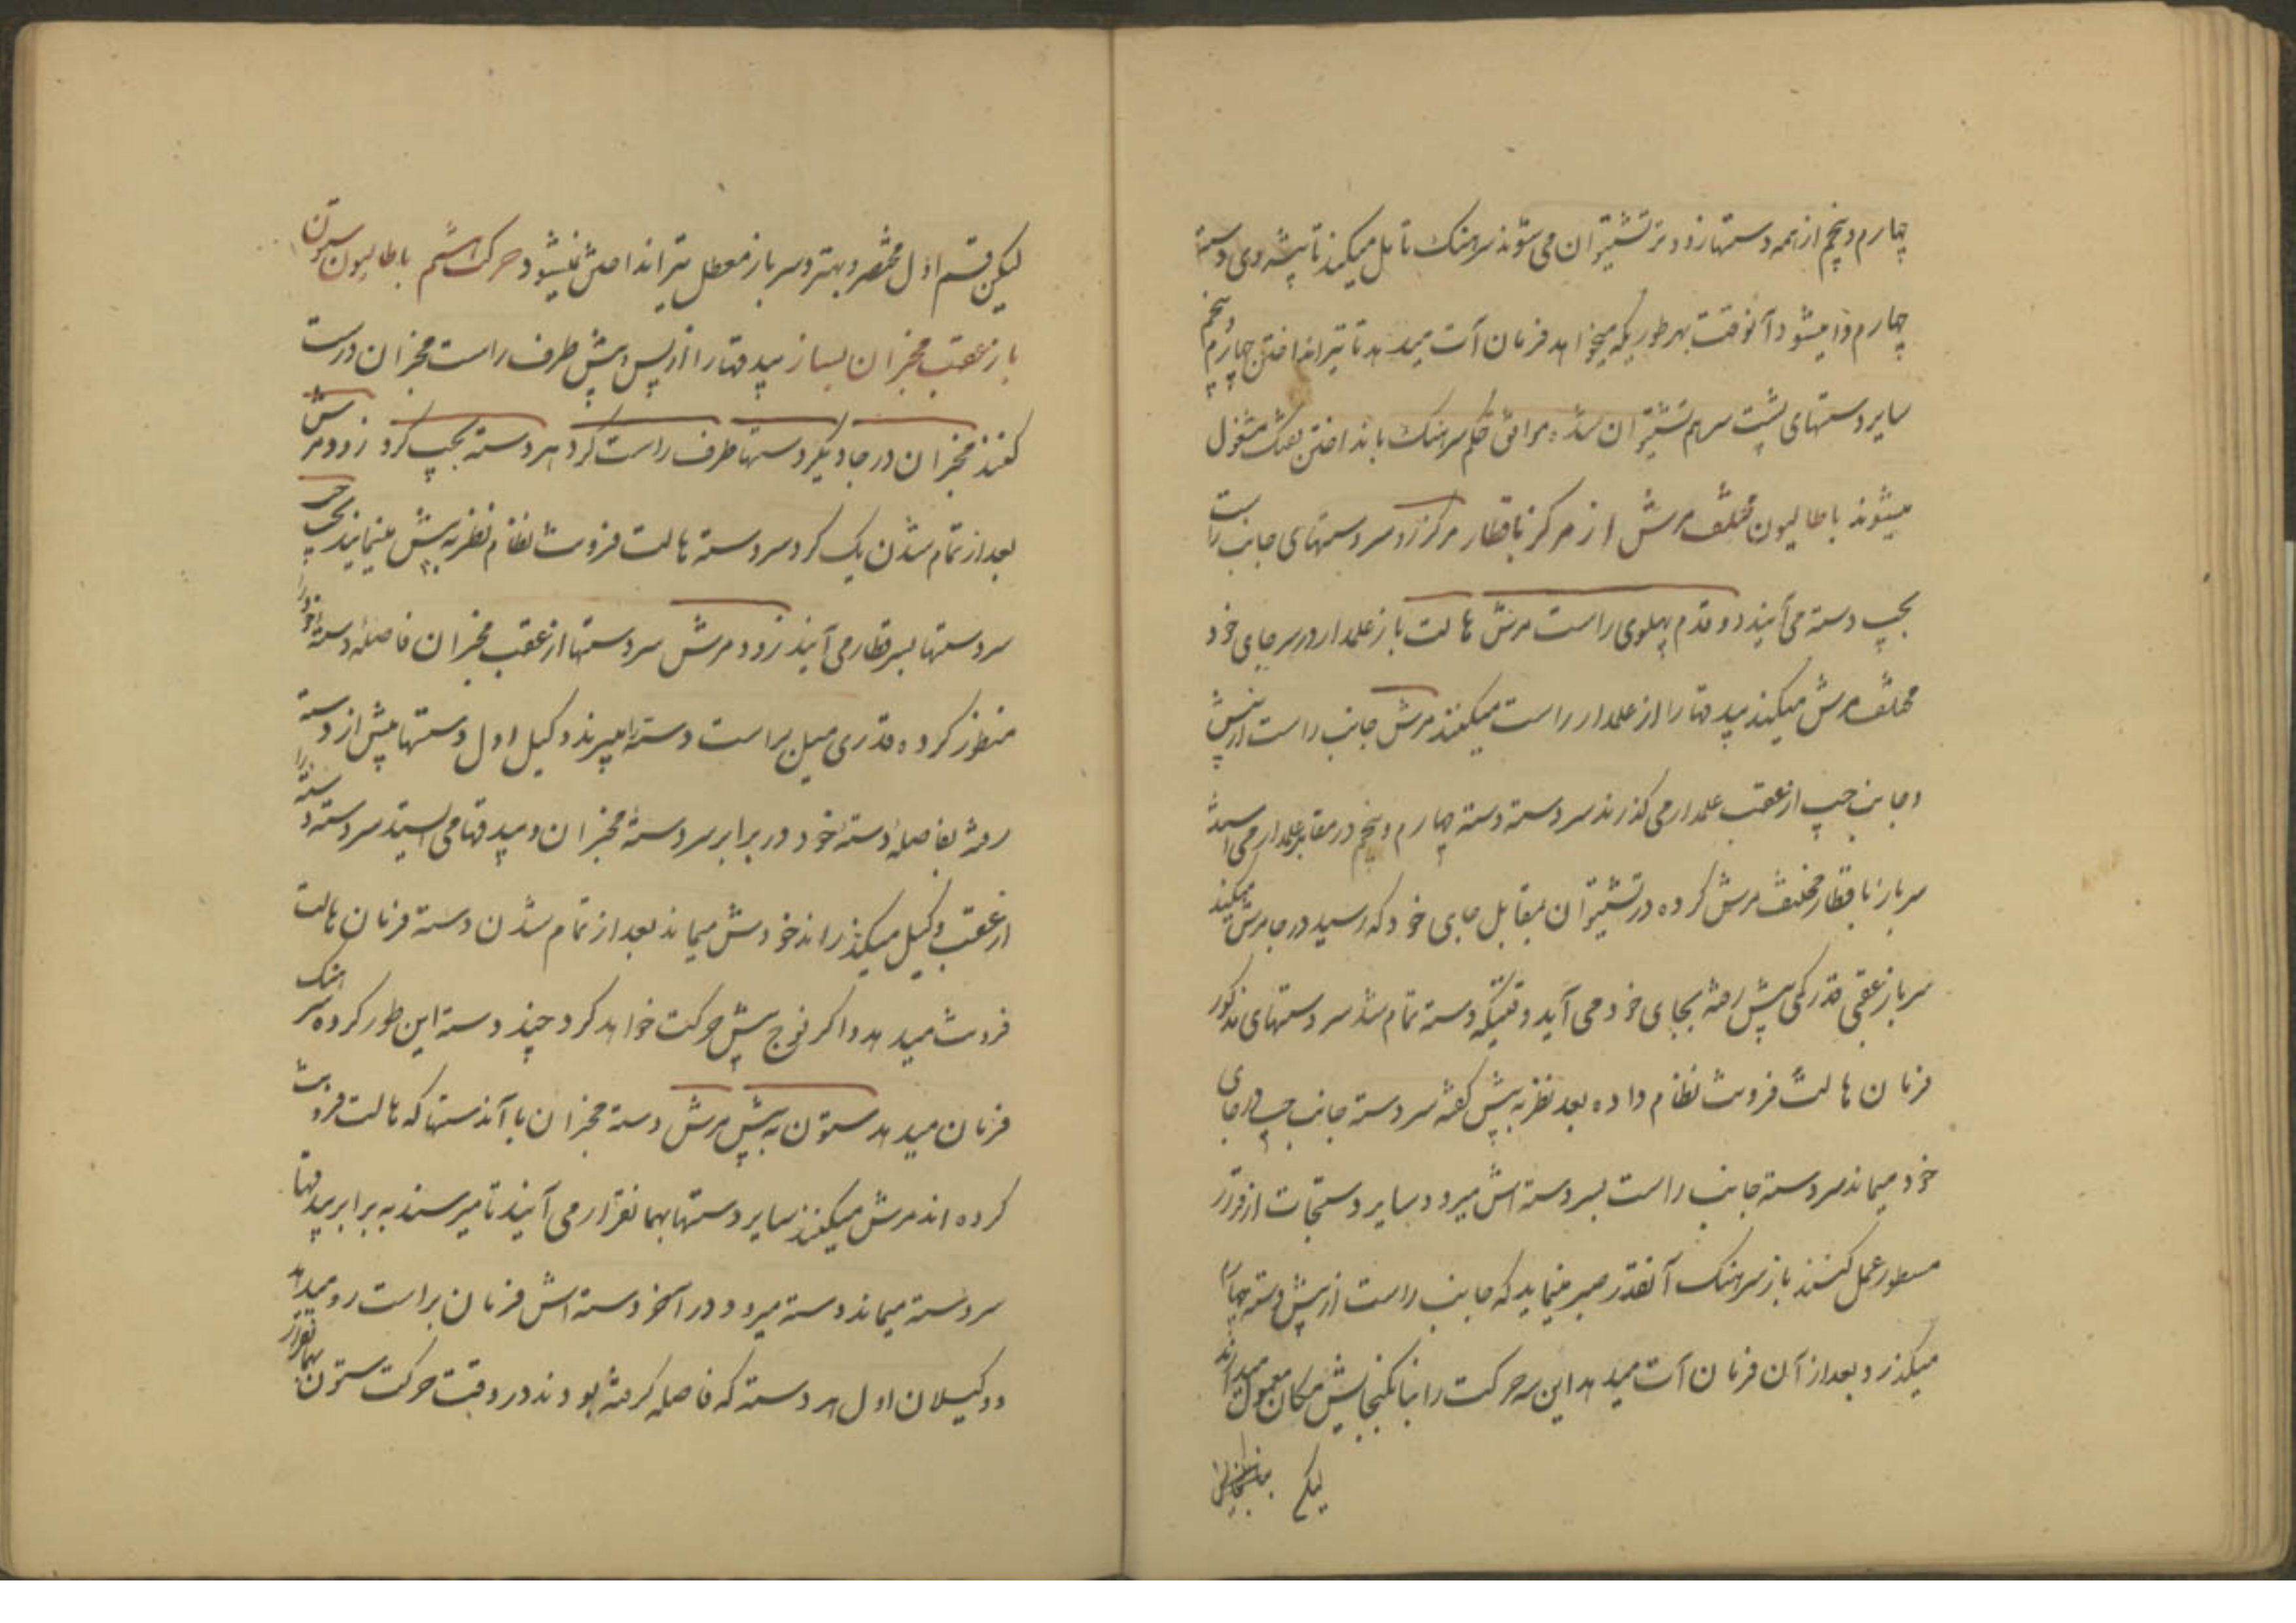 چهارم و پنجم از همه دستها زودتر تشتیران می شوند سرهنک تامل میکند تا پیشروی دستهٔ
چهارم وا میشود آنوقت بهر طوریکه میخواهد فرمان آت میدهد تا تیر انداختن چهارم و پنجم
سایر دستهای پشت سر هم تشتیران شده موافق حکم سرهنک بانداختن تفنک مشغول
میشوند باطالیون مختلف مرش از مرکز ناقطار مرکز زود سر دستهای جانب راست
بچپ دسته می آیند دو قدم پهلوی راست مرش هالت باز علمدار در سر جای خود
مختلف مرش میکند بیدقها را از علمدار راست میکنند مرش جانب راست از پیش
و جانب چپ از عقب علمدار می کذرند سر دسته دسته چهارم و پنجم در مقابل علمدار می ایستد
سرباز ناقطار مختلف مرش کرده در تشتیران بمقابل جای خود که رسید در جا مرش میکند
سرباز عقبی قدر کمی پیش رفته بجای خود می آید وقتیکه دسته تمام شد سر دستهای مذکور
فرمان هالت فرونت نظام داده بعد نظر به پیش کفته سر دسته جانب چپ در جای
خود میماند سر دسته جانب راست بسر دسته اش میرود و سایر دستجات از قرار
مسطور عمل کنند باز سرهنک آنقدر صبر مینماید که جانب راست از پیش دسته چهارم
میکذرد و بعد از آن فرمان آت میدهد این سه حرکت را بنا بکنجایش مکان معمول میدارند
لیکن
لیکن قسم اول مختصر و بهتر و سرباز معطل تیر انداختن نمیشود حرکت هشتم باطالیون ستون
باز عقب مخبران بساز بیدقها را از پس و پیش طرف راست مخبران درست
کنند مخبران در جا دیکر دستها طرف راست کرد هر دسته بچپ کرد زود مرش
بعد از تمام شدن یک کرد سر دسته هالت فرونت نظام نظر به پیش مینمایند بچپ چپ
سر دستها بسر قطار می آیند زود مرش سر دستها از عقب مخبران فاصلهٔ دسته خود را
منظور کرده قدری میل براست دسته را میبرند وکیل اول دستها پیش از دسته
رفته بفاصلهٔ دستهٔ خود در برابر سر دستهٔ مخبران و بیدقها می ایستد سر دسته دسته را
از عقب وکیل میکذراند خودش میماند بعد از تمام شدن دسته فرمان هالت
فرونت میدهد و اکر فوج پیش حرکت خواهد کرد چند دسته این طور کرده سرهنک
فرمان میدهد ستون به پیش مرش دسته مخبران با آندستها که هالت فرونت
کرده اند مرش میکنند سایر دستها بهمانقرار می آیند تا میرسند به برابر بیدقها
سر دسته میماند دسته میرود در آخر دسته اش فرمان براست رو میدهد
و وکیلان اول هر دسته که فاصله کرفته بودند در وقت حرکت ستون بهمانقرار